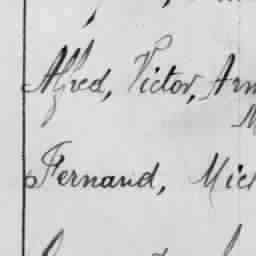 Alfred, Victor, Arm
Fernand, Mich